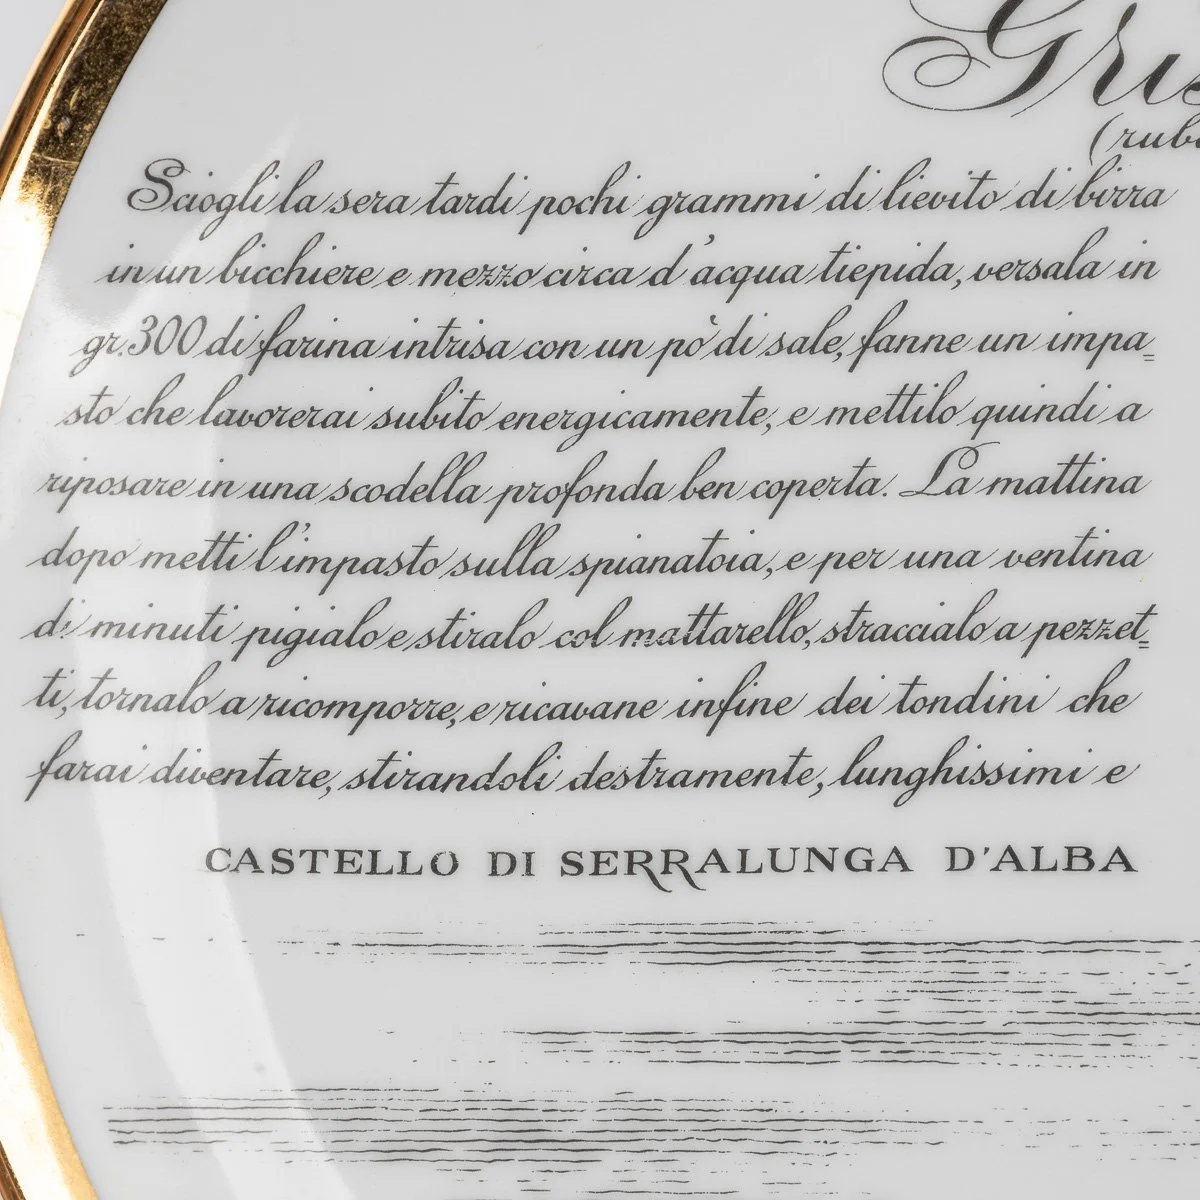 Gris
(rub
Sciogli la sera tardi pochi grammi di lievito di birra
in un bicchiere e mezzo circa d'acqua tiepida, versala in
gr. 300 di farina intrisa con un pò di sale, fanne un impa=
sto che lavorerai subito energicamente, e mettilo quindi a
riposare in una scodella profonda ben coperta. La mattina
dopo metti l'impasto sulla spianatoia, e per una ventina
di minuti pigialo e stiralo col mattarello, straccialo a pezzet=
ti, tornalo a ricomporre, e ricavane infine dei tondini che
farai diventare, stirandoli destramente, lunghissimi e
CASTELLO DI SERRALUNGA D'ALBA